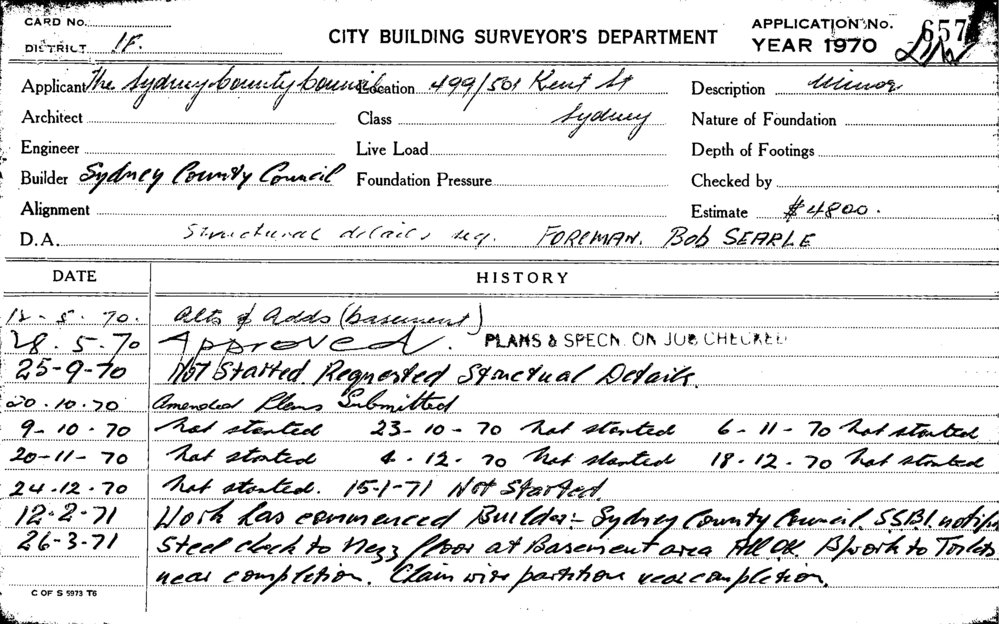 CARD No.
DISTRICT 1F.
CITY BUILDING SURVEYOR'S DEPARTMENT
APPLICATION No. 657
YEAR 1970
Applicant The Sydney County Council Location 499/501 Kent St Description Minor
Architect Class Sydney Nature of Foundation
Engineer Live Load Depth of Footings
Builder Sydney County Council Foundation Pressure Checked by
Alignment Estimate $4800.
D.A. Structural details req. FOREMAN. Bob SEARLE
DATE HISTORY
18-5-70. Alts & Adds (basement)
28.5.70 Approved. PLANS & SPECN. ON JOB CHECKED
25-9-70 Not Started Requested Structual Details.
20.10.70 Amended Plans Submitted
9-10-70 Not started 23-10-70 Not started 6-11-70 Not started
20-11-70 Not started 4.12.70 Not started 18.12.70 Not started
24.12.70 Not started. 15-1-71 Not Started.
12-2-71 Work has commenced Builder:- Sydney County Council. S.S.B.I. notified
26-3-71 Steel deck to Mezz floor at Basement area All OK B/work to Toilets
near completion. Clain wire partition near completion.
C OF S 5973 T6